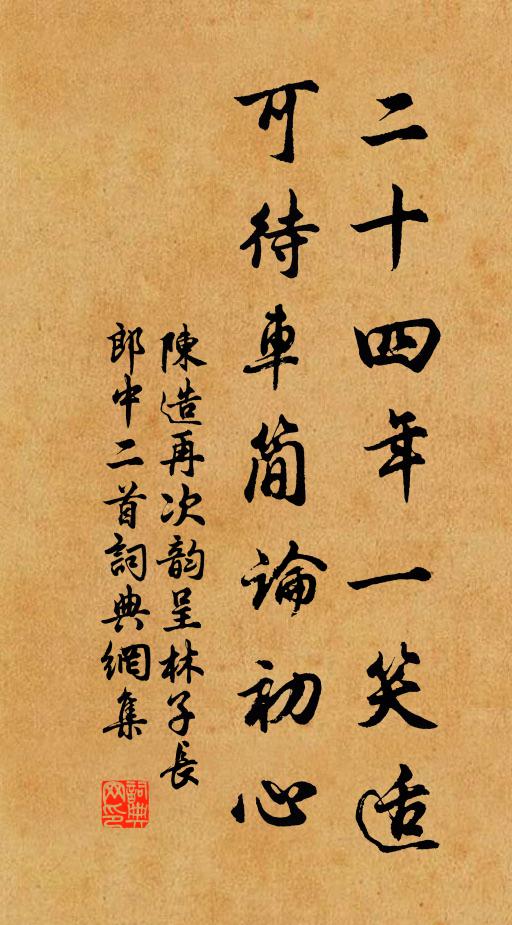 二十四年一笑适
可待車简論初心
陳造再次韵呈林子長
郎中二首詞典網集
詞典网印